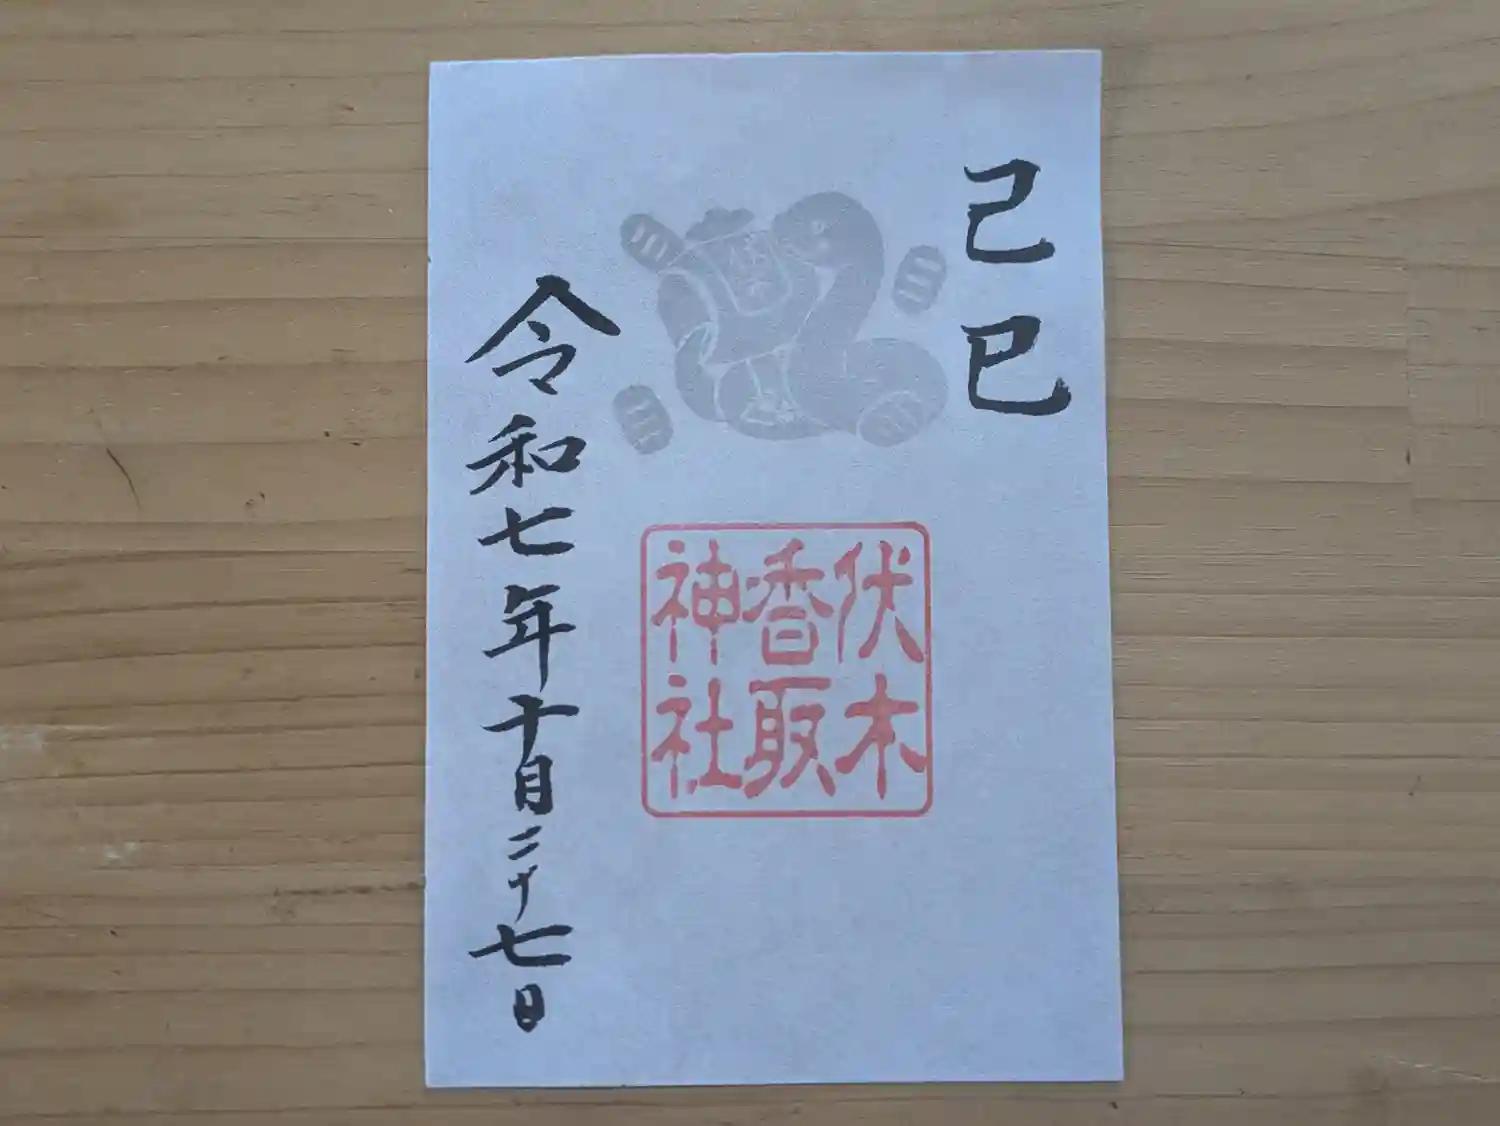 己巳
伏木
香取
神社
令和七年十月二十七日